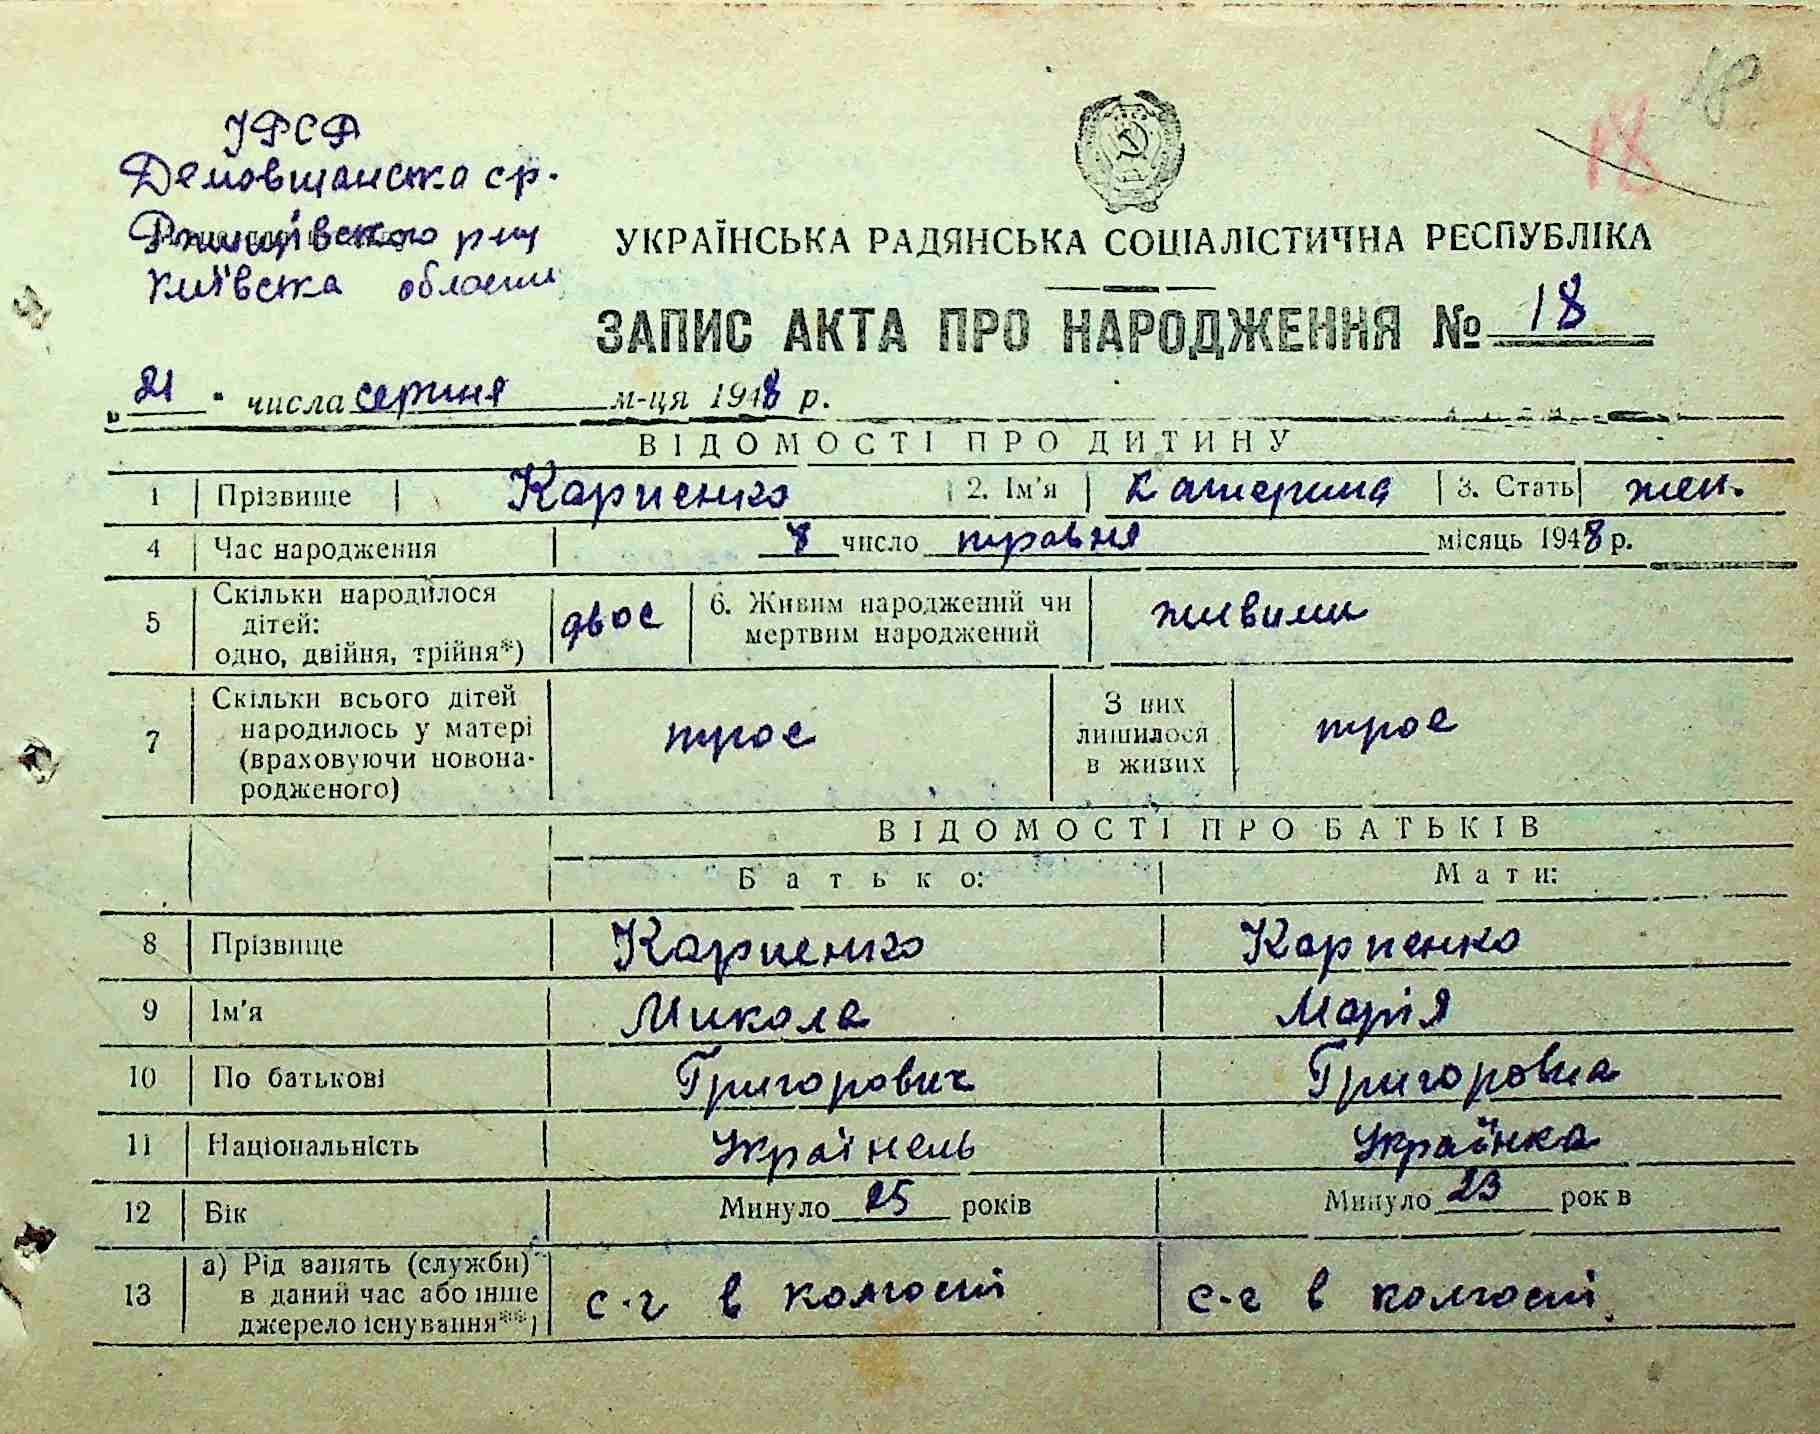 18
18
УРСР
Демовщанська с.р.
Ржищівського р-ну
Київська області
УКРАЇНСЬКА РАДЯНСЬКА СОЦІАЛІСТИЧНА РЕСПУБЛІКА
ЗАПИС АКТА ПРО НАРОДЖЕННЯ № 18
„21" числа серпня м-ця 1948 р.
ВІДОМОСТІ ПРО ДИТИНУ
1 Прізвище Карпенко 2. Ім'я Катерина 3. Стать жен.
4 Час народження 8 число травня місяць 1948 р.
5 Скільки народилося дітей: одно, двійня, трійня*) двоє 6. Живим народжений чи мертвим народжений живими
7 Скільки всього дітей народилось у матері (враховуючи новонародженого) троє З них лишилося в живих троє
ВІДОМОСТІ ПРО БАТЬКІВ
Батько: Мати:
8 Прізвище Карпенко Карпенко
9 Ім'я Микола Марія
10 По батькові Григорович Григоровна
11 Національність Украінець Українка
12 Вік Минуло 25 років Минуло 23 рок в
13 а) Рід занять (служби) в даний час або інше джерело існування**) с-г в колгоспі с-г в колгоспі